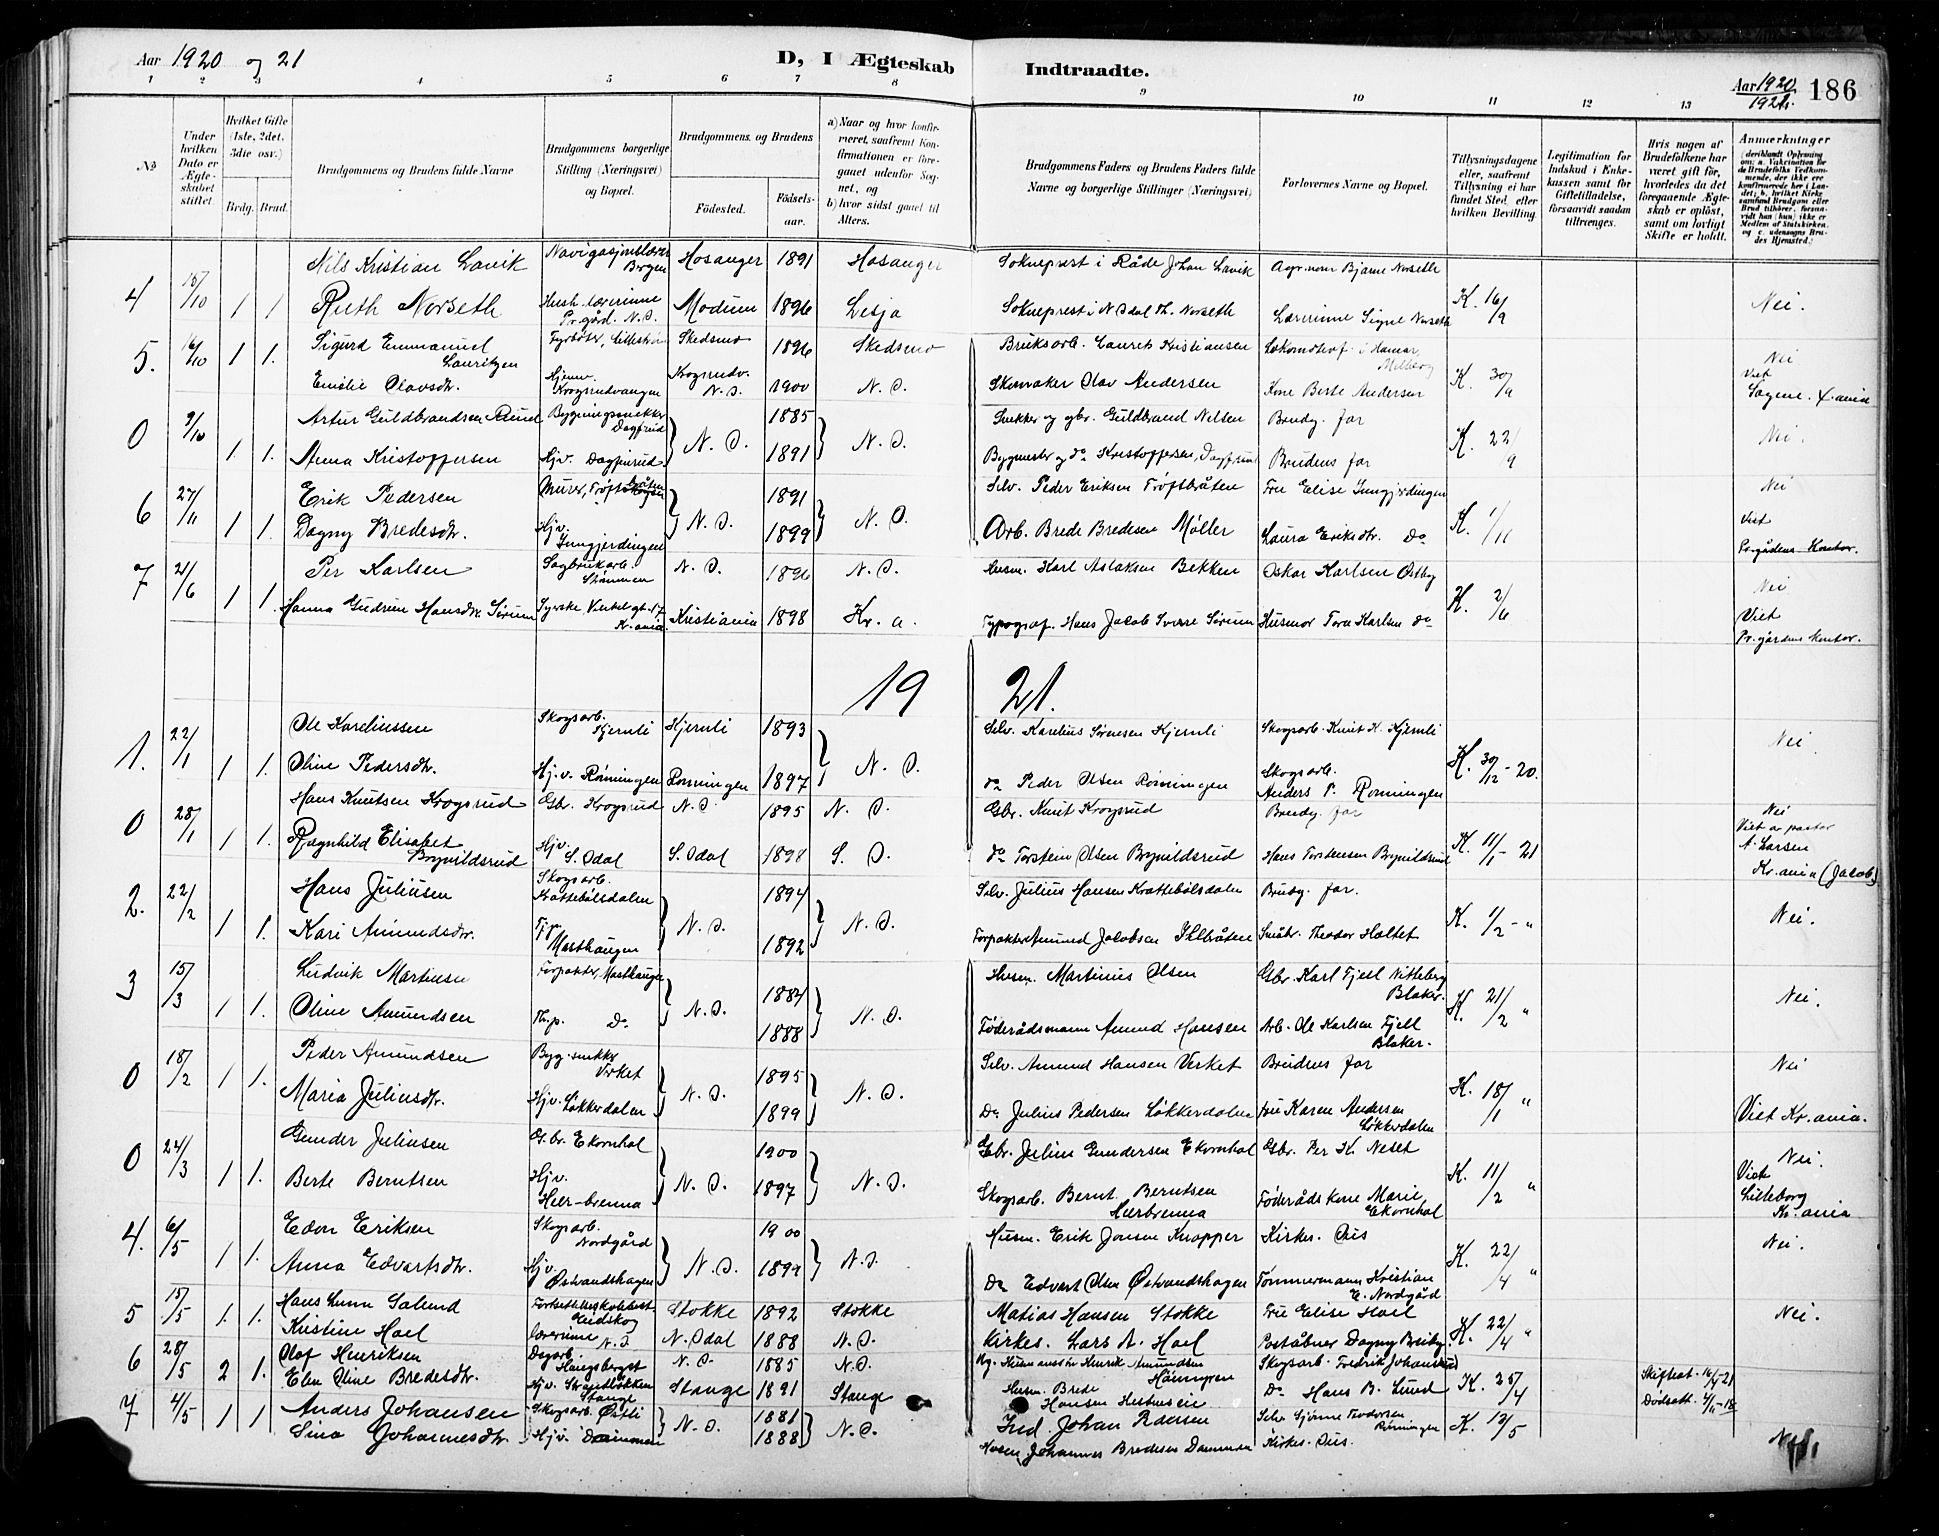 Aar 1920 og 21
D, I Ægteskab Indtraadte.
Aar 1920 1921. 186
1 2 3 4 5 6 7 8 9 10 11 12 13
No
Under hvilken Dato er Ægteskabet stiftet.
Hvilket Gifte (1ste, 2det, 3die osv.)
Brdg. Brud.
Brudgommens og Brudens fulde Navne
Brudgommens borgerlige Stilling (Næringsvei) og Bopæl.
Brudgommens og Brudens
Fødested. Fødselsaar.
a) Naar og hvor konfirmeret, saafremt Konfirmationen er foregaaet udenfor Sognet, og b) hvor sidst gaaet til Alters.
Brudgommens Faders og Brudens Faders fulde Navne og borgerlige Stillinger (Næringsvei)
Forlovernes Navne og Bopæl.
Tillysningsdagene eller, saafremt Tillysning ei har fundet Sted, efter hvilken Bevilling.
Legitimation for Indskud i Enkekassen samt for Giftetilladelse, forsaavidt saadan tiltrænges.
Hvis nogen af Brudefolkene har været gift før, hvorledes da det foregaaende Ægteskab er opløst, samt om lovligt Skifte er holdt.
Anmærkninger
4 15/10 1 1 Nils Kristian Lavik Navigasjonslærer Bergen Hosanger 1891 Hosanger Sokneprest i Råde Johan Lavik Agronom Bjarne Norseth
Ruth Norseth Hush.lærerinne Pr.gård. N.O. Modum 1896 Lesja Sokneprest i N.Odal Th. Norseth Lærerinne Signe Norseth K. 16/9 Nei.
5. 16/10 1 1. Sigurd Emmanuel Lauritzen Fyrbøter, Lillestrøm Skedsmo 1896 Skedsmo Bruksarb. Laurets Kristiansen Lokomotivf. i Hamar,
Emelie Olavsdtr. Hjemv. Krogsrudvangen Krogsrudv. N.O. 1900 N.O. Skomaker Olav Andersen Kone Berte Andersen K. 30/9 Nei Viet
0 9/10 1. 1. Artur Guldbrandsen Bygningssnekker Dagfinrud N.O. 1885 N.O. Snekker og gbr. Guldbrand Nilsen Brudg. far
Anna Kristoffersen Hjv. Dagfinrud 1891 Bygmester og do Kristoffersen, Dagfinrud Brudens far K. 22/9 Nei.
6 27/11 1 1. Erik Pedersen Murer, 1891 N.O. Selv. Peder Eriksen Trøftbråten Fru Elise Jungjerdingen Nei
Dagny Bredesdtr. Hjv. Jungjerdingen N.O. 1899 Arb. Brede Bredesen Møller Laura Eriksdtr. Do K. 1/11 Viet Pr.gårdens Kontor.
7 21/6 1 1. Per Karlsen Sagbruksarb. Strømmen N.O. 1896 N.O. Husm. Karl Aslaksen Bekken Oskar Karlsen Østby Nei
Hanna Gudrun Hansdtr. Sørum Syerske, Verksgt. 17 Kr.ania. Kristiania 1898 Kr.a. Typograf. Hans Jacob Sverre Sørum Husmor Tora Karlsen do K. 2/6 Viet Pr.gårdens kontor.
19 21.
1. 22/1 1 1. Ole Kareliussen Skogsarb. Kjernli Kjernli 1893 N.O. Selv. Karelius Sørensen Kjernli Skogsarb. Knut K. Kjernli
Oline Pedersdtr. Hj.v. Rønningen Rønningen 1897 do Peder Olsen Rønningen Skogsarb. Anders P. Rønningen K. 30/12-20. Nei
0 28/1 1 1. Hans Knutsen Krogsrud Gbr. Krogsrud N.O. 1895 N.O. Gbr. Knut Krogsrud Brudg. far Nei
Ragnhild Elisabet Brynildsrud Hjv. S. Odal S. Odal 1898 S.O. do Torstein Olsen Brynildsrud Hans Torstensen Brynildsrud K. 11/1-21 Viet av pastor A. Larsen Kr.ania (Jacob)
2. 22/2 1 1. Hans Juliusen Skogsarb. Krattebølsdalen N.O. 1894 N.O. Selv. Julius Hansen Krattebølsdalen Brudg. far.
Kari Amundsdtr. Masthaugen 1892 Forpakter Amund Jacobsen Småbr. Theodor Holtet K. 1/2 - " Nei.
3 15/3 1 1. Ludvik Martinsen Forpakter, Masthaugen N.O. 1884 N.O. Husm. Martinius Olsen Gbr. Karl Fjell Nitteberg Blaker.
Oline Amundsen Do 1888 Føderådsmann Amund Hansen Arb. Ole Karlsen Fjell Blaker. K. 21/2 " Nei.
0 18/2 1 1. Peder Amundsen Byg.snekker Verket N.O. 1895 N.O. Selv. Amund Hansen Verket Brudens far Nei
Maria Juliusdtr. Hjv. Løkkerdalen 1899 Do Julius Pedersen Løkkerdalen Fru Karen Andersen Løkkerdalen K. 18/1 " Viet Kr.ania.
0 24/3 1 1. Gunder Juliusen G.br. Ekornhol N.O. 1900 N.O. Gbr. Julius Gundersen Ekornhol Gbr. Per K. Neset Nei.
Berte Berntsen Hjv. Herbrenna 1897 Skogsarb. Bernt Berntsen Herbrenna Føderådskone Marie Ekornhol K. 11/2 " Viet Lilleborg Kr.ania
4. 6/5 1 1. Edon Eriksen Skogsarb. Nordgård N.O. 1900 N.O. Husm. Erik Jonsen Knapper Kirkes. Ous Nei.
Anna Edvartsdtr. Hjv. Østvandshagen 1899 Do Edvart Olsen Østvandshagen Tømmermann Kristian E. Nordgård K. 22/4 "
5 15/5 1. 1. Hans Lunn Solund Fortsettelsesskolebest. Eidskog Stokke 1892 Stokke Matias Hansen Stokke Fru Elise Hoel Nei.
Kristine Hoel lærerinne N.O. N. Odal 1888 N.O. Kirkes. Lars A. Hoel Poståbner Dagny Breiby K. 22/4 "
6 28/5 2 1. Olaf Henriksen Dagarb. Haugsbergst N.O. 1885 N.O. Henrik Amundsen Skogsarb. Fredrik Johansrud
Elen Oline Bredesdtr. Hjv. Strandløkken Stange Stange 1891 Stange Husm. Brede Hansen Hestnesen Do Hans B. Lund K. 25/4 Skifteat. 16/4-21 Dødsatt. 4/11-18
7 4/5 1 1 Anders Johansen Skogsarb. Østli N.O. 1881 N.O. Ind. Johan Pedersen Selv. Sjønne Teodorsen Rønningen K. 12/5
Lina Johannesdtr. Hjv. Dammen 1888 Husm. Johannes Bredesen Dammen Kirkes. Ous. Nei